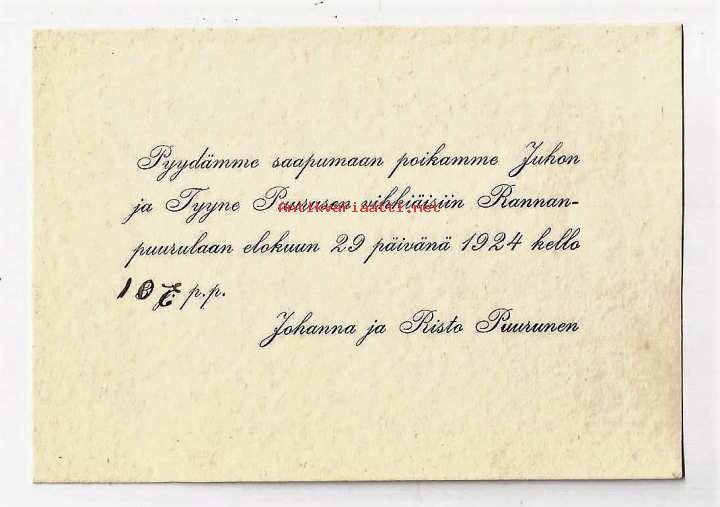 Pyydämme saapumaan poikamme Juhon
ja Tyyne Puurusen vihkiäisiin Rannan-
antikvariaatti.net
puurulaan elokuun 29 päivänä 1924 kello
p.p.
Johanna ja Risto Puurunen